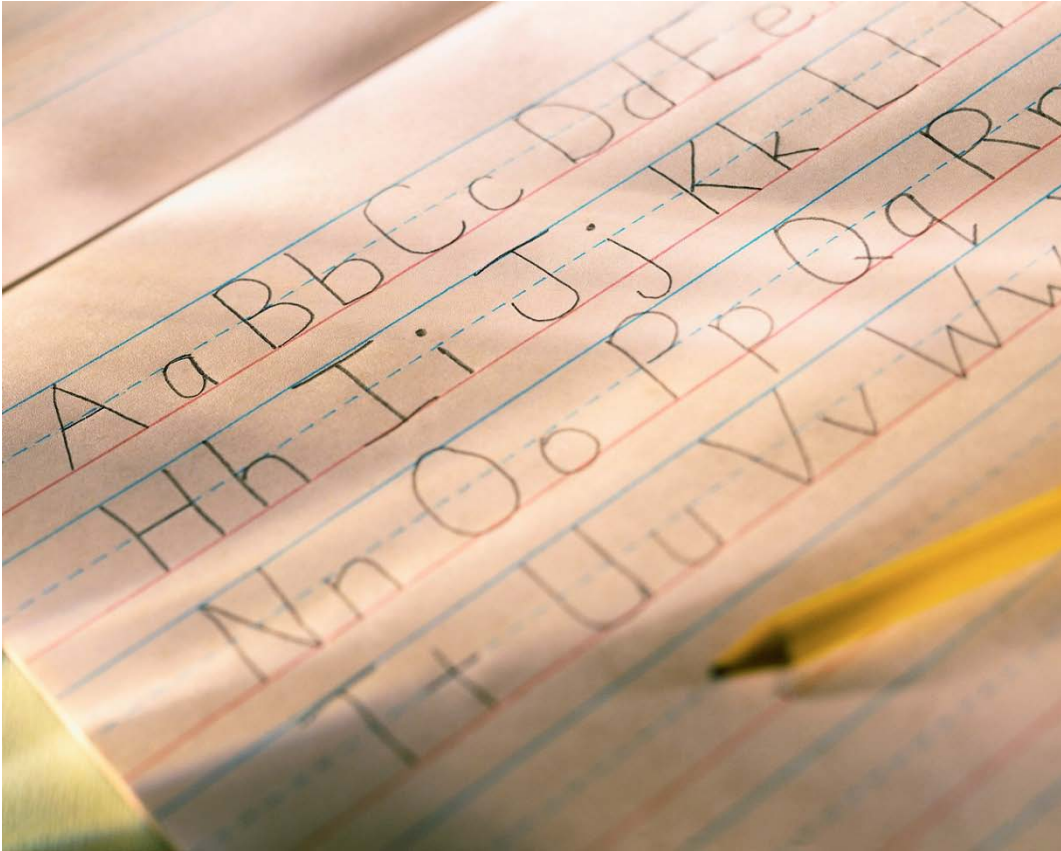 A a B b C c D d E e
H h I i J j K k L l
N n O o P p Q q R r
T t U u V v W w